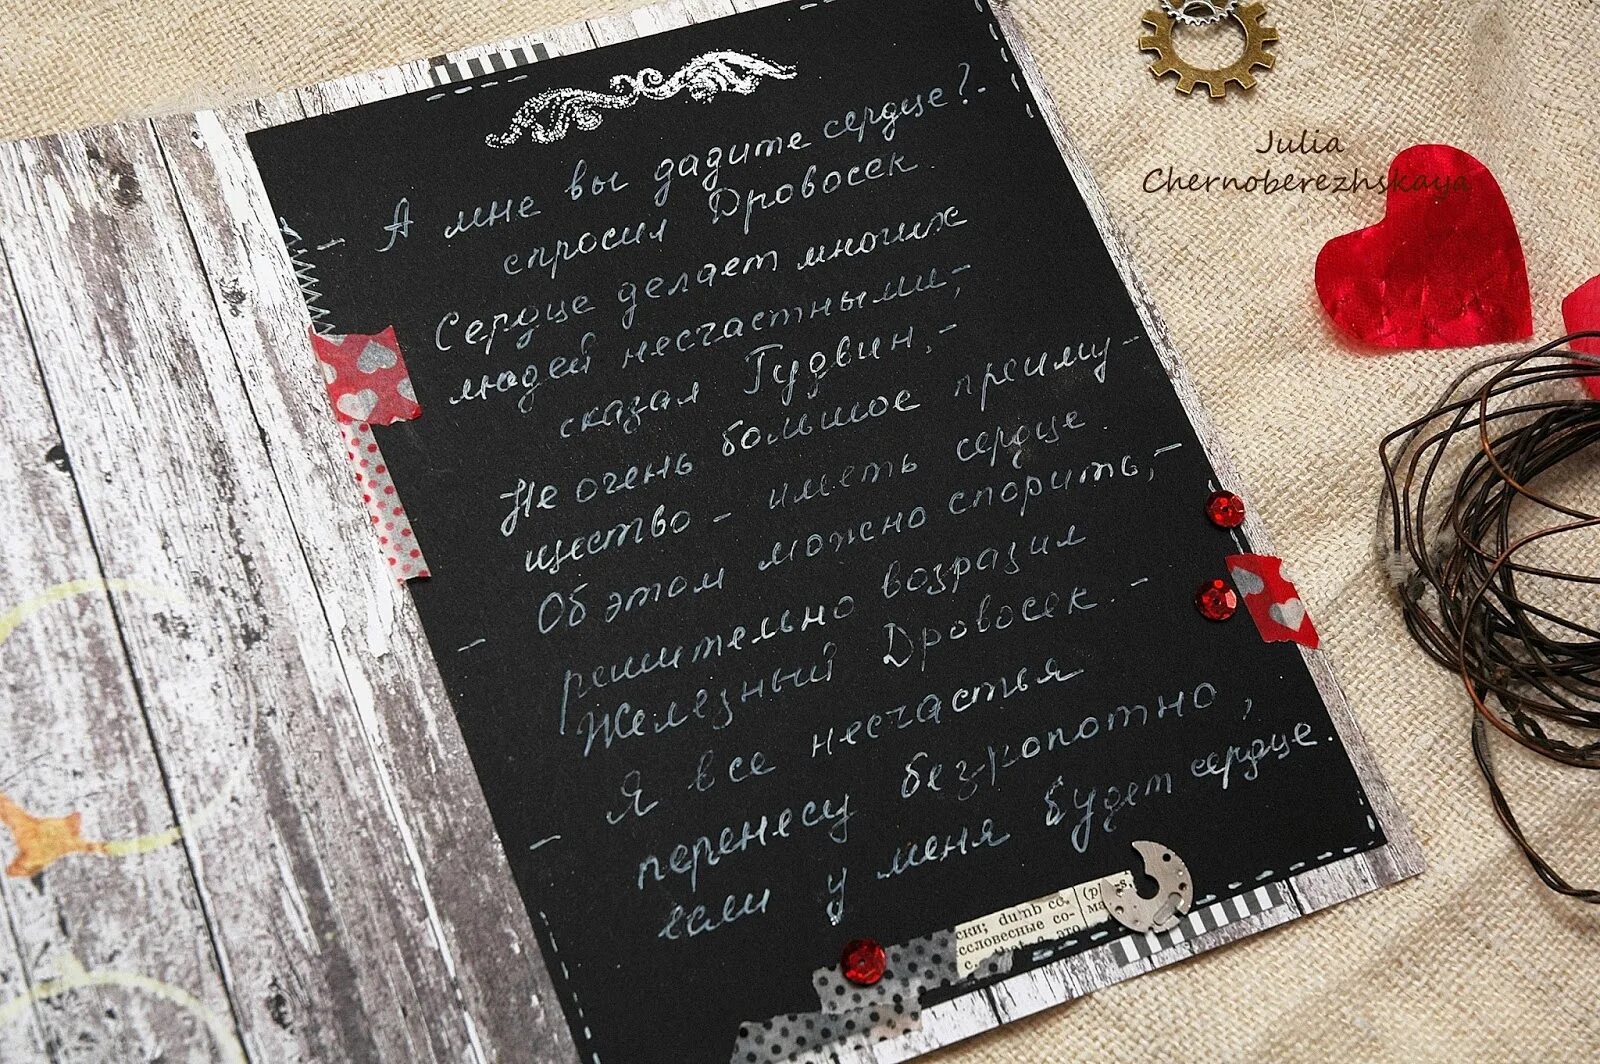 Julia
Chernoberezhskaya
- А мне вы дадите сердце? -
спросил Дровосек.
Сердце делает многих
людей несчастными, -
сказал Гудвин, -
Не очень большое преиму-
щество - иметь сердце.
- Об этом можно спорить, -
решительно возразил
Железный Дровосек. -
- Я все несчастья
перенесу безропотно,
если у меня будет сердце.
ски; dumb co.
ссловесные со-